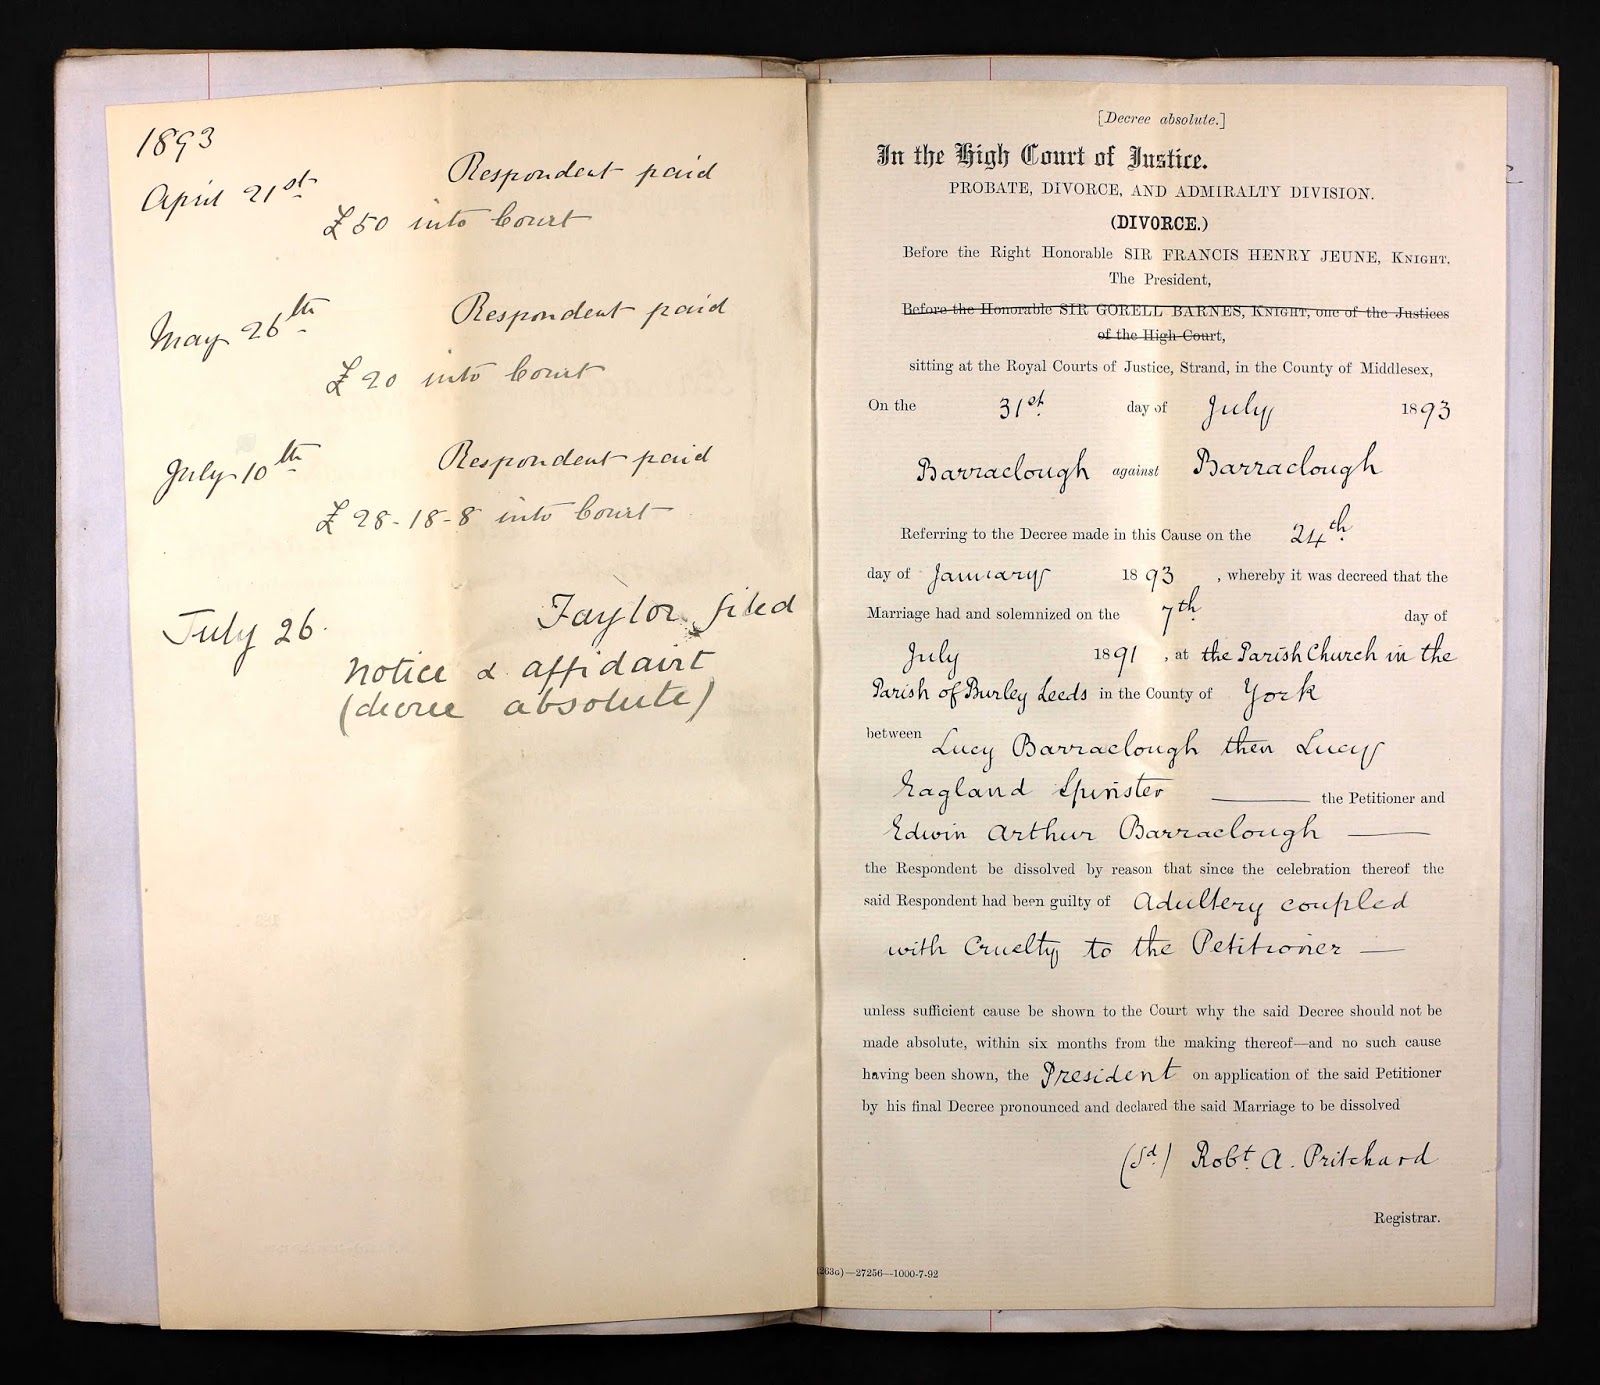 1893
April 21st Respondent paid
£50 into Court
May 26th Respondent paid
£20 into Court
July 10th Respondent paid
£28-18-8 into Court
July 26. Taylor filed
notice & affidavit
(decree absolute)
[Decree absolute.]
In the High Court of Justice.
PROBATE, DIVORCE, AND ADMIRALTY DIVISION.
(DIVORCE.)
Before the Right Honorable SIR FRANCIS HENRY JEUNE, KNIGHT,
The President,
Before the Honorable SIR GORELL BARNES, KNIGHT, one of the Justices
of the High Court,
sitting at the Royal Courts of Justice, Strand, in the County of Middlesex,
On the 31st day of July 1893
Barraclough against Barraclough
Referring to the Decree made in this Cause on the 24th
day of January 1893, whereby it was decreed that the
Marriage had and solemnized on the 7th day of
July 1891, at the Parish Church in the
Parish of Burley Leeds in the County of York
between Lucy Barraclough then Lucy
Eagland Spinster the Petitioner and
Edwin Arthur Barraclough
the Respondent be dissolved by reason that since the celebration thereof the
said Respondent had been guilty of Adultery coupled
with Cruelty to the Petitioner
unless sufficient cause be shown to the Court why the said Decree should not be
made absolute, within six months from the making thereof—and no such cause
having been shown, the President on application of the said Petitioner
by his final Decree pronounced and declared the said Marriage to be dissolved
(Sd.) Robt. A. Pritchard
Registrar.
(263G)—27256—1000-7-92